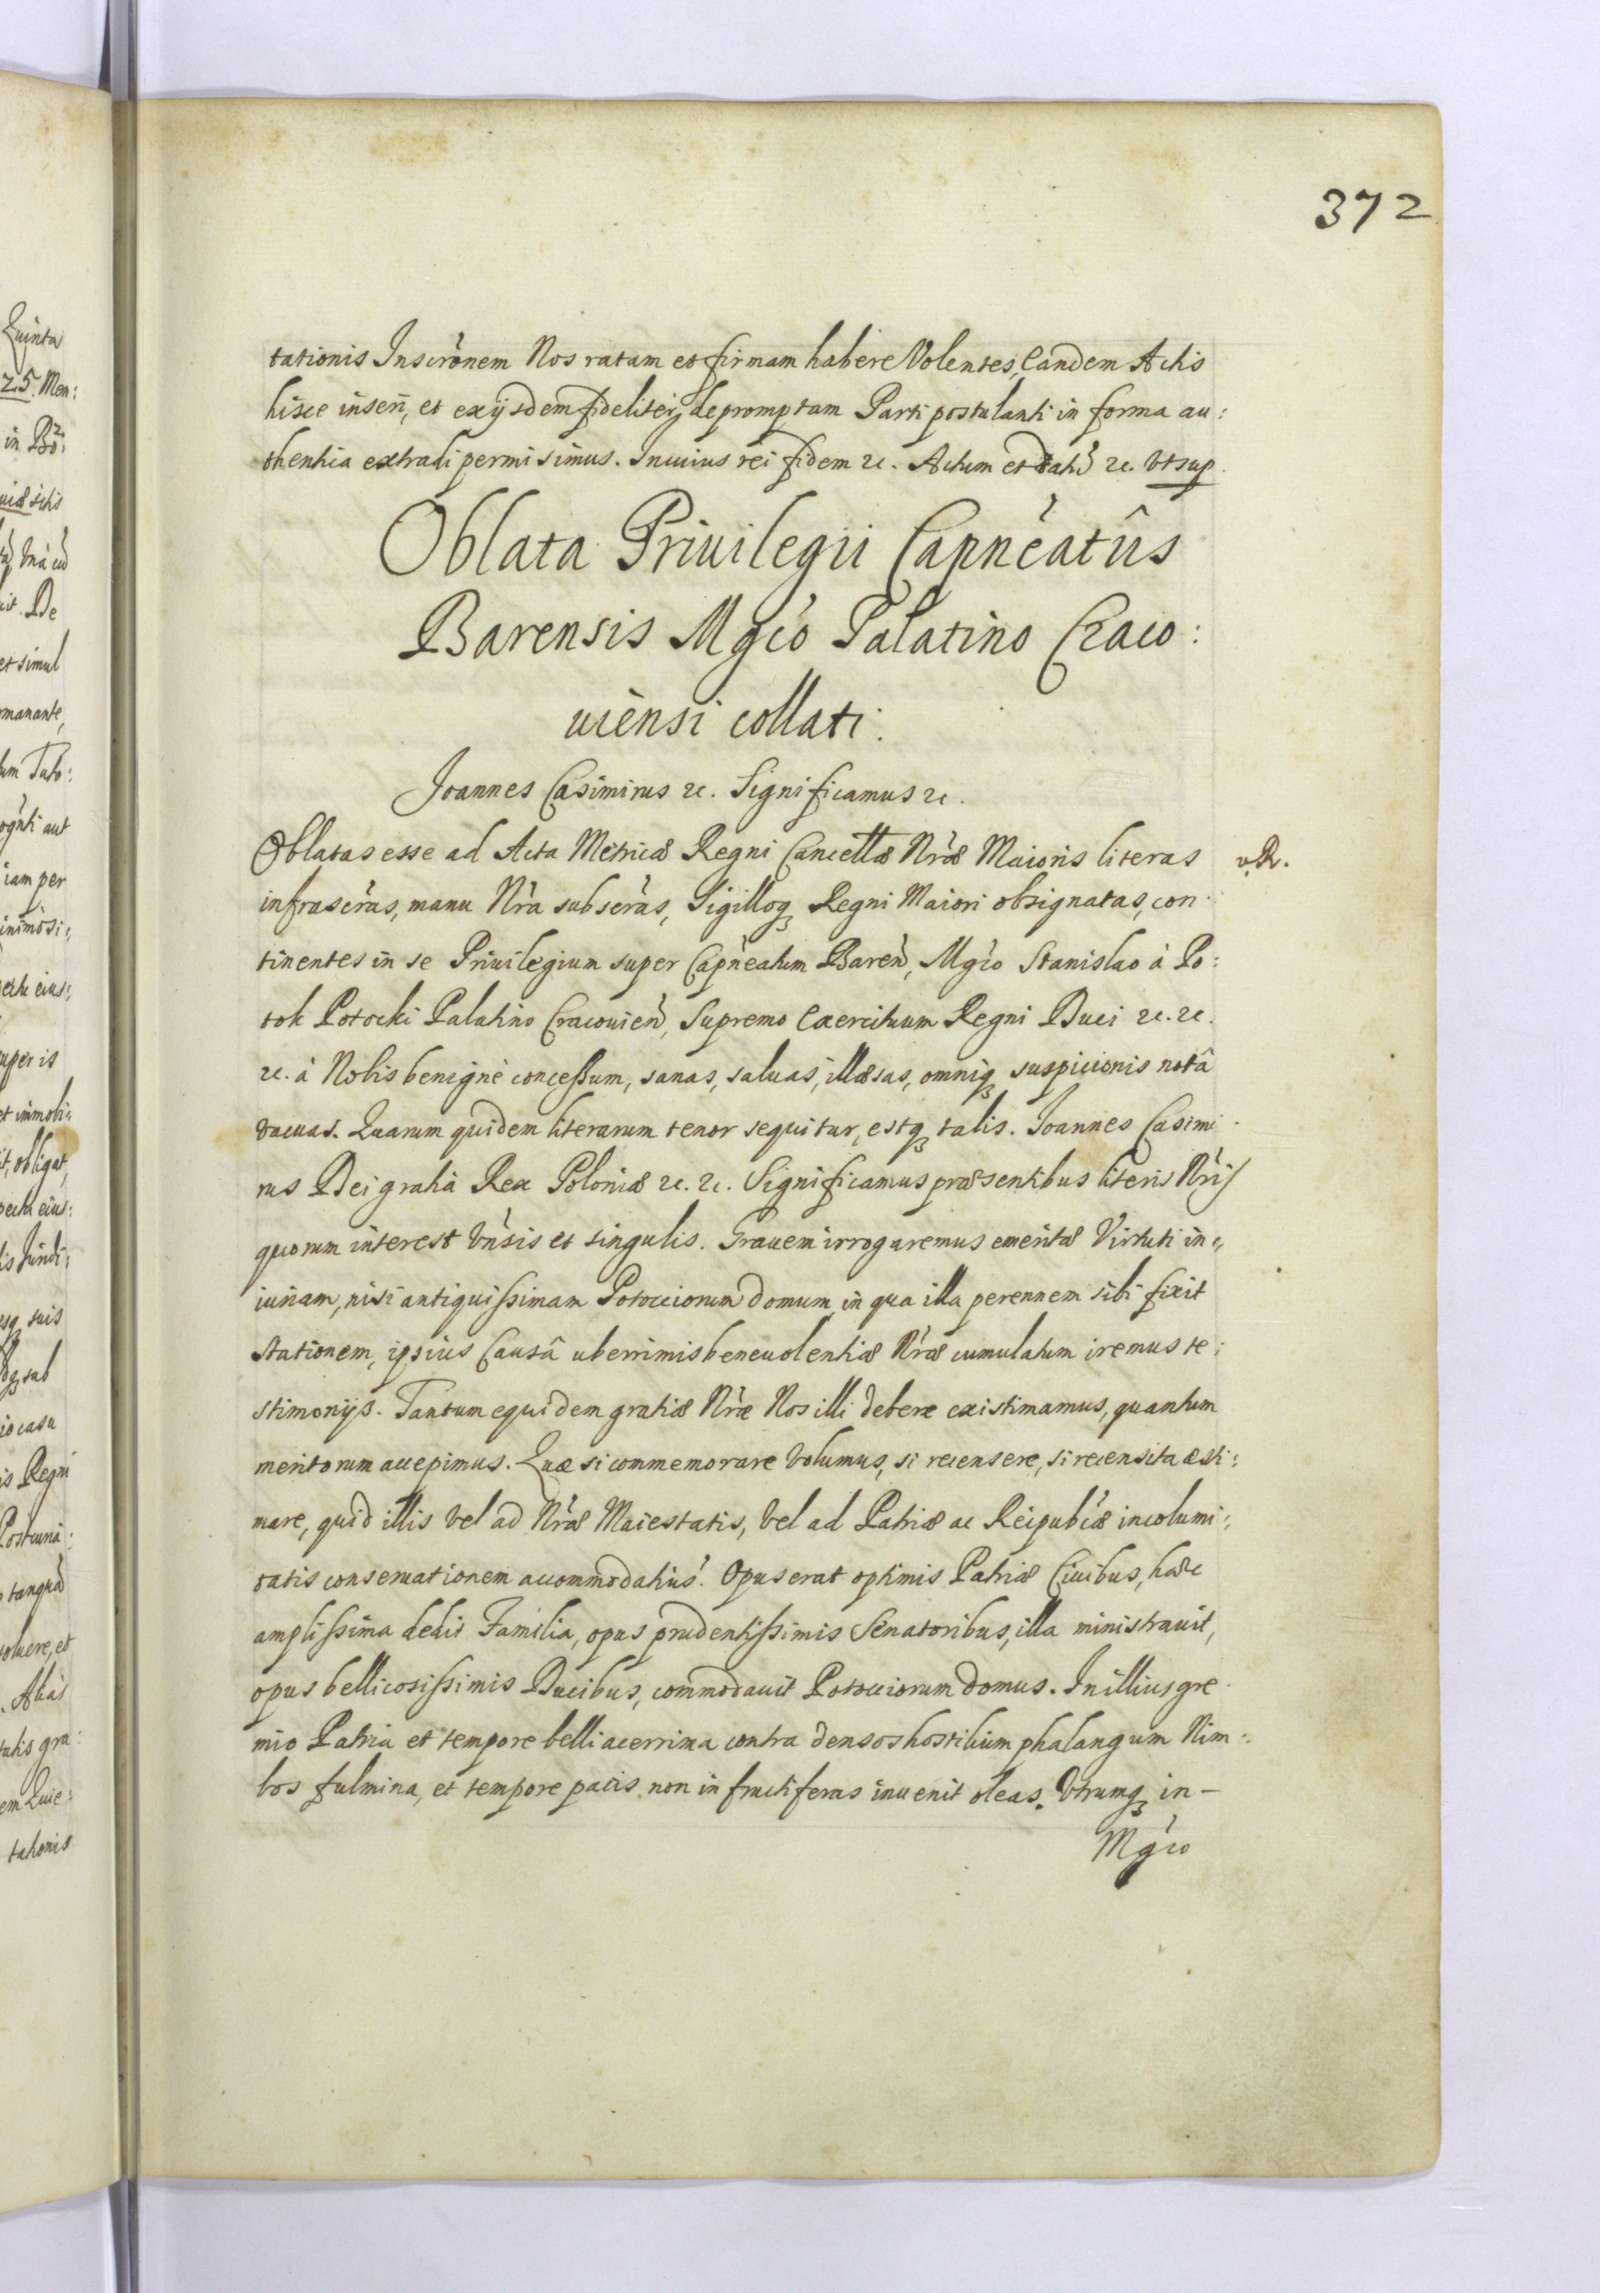 372
tationis Inscrònem Nos ratam et firmam habere Volentes, Eandem Actis
hisce inseri, et exijsdem fideliter depromptam Parti postulanti in forma au:
thentica extradi permisimus. Incuius rei fidem &c. Actum et datũ &c. Vtsup.
Oblata Priuilegii Capnèatûs
Barensis Mgcò Palatino Craco:
uiensi collati.
Joannes Casimirus &c. Significamus &c.
Oblatas esse ad Acta Metricæ Regni Cancellæ Nræ Maioris literas
v. R.
infrascràs, manu Nrà subscràs, Sigilloq₃ Regni Maiori obsignatas, con:
tinentes in se Priuilegium super Capneatum Baren, Mgcò Stanislao à Po:
tok Potocki Palatino Cracouien, Supremo Exercituum Regni Duci &c. &c.
&c. à Nobis benignè concessum, sanas, saluas, illæsas, omniq₃ suspicionis notâ
vacuas. Quarum quidem literarum tenor sequitur, estq₃ talis. Joannes Casimi:
rus Dei gratia Rex Poloniæ &c. &c. Significamus præsentibus literis Nris
quorum interest Vnsis et singulis. Grauem irrogaremus emeritæ Virtuti in:
iuriam, nisi antiquissimam Potocciorum domum, in qua illa perennem sibi fixit
stationem, ipsius Causâ uberrimis beneuolentiæ Nræ cumulatum iremus te:
stimonijs. Tantum equidem gratiæ Nræ Nos illi debere existimamus, quantum
meritorum accepimus. Quæ si commemorare Volumus, si recensere, si recensita æsti:
mare, quid illis Vel ad Nræ Maiestatis, Vel ad Patriæ ac Reipubcæ incolumi:
tatis conseruationem accommodatius? Opus erat optimis Patriæ Ciuibus, hæc
amplissima dedit Familia, opus prudentissimis Senatoribus, illa ministrauit,
opus bellicosissimis Ducibus, commodauit Potocciorum domus. In illius gre:
mio Patria et tempore belli acerrima contra densos hostilium phalangum Nim:
bos fulmina, et tempore pacis non infructiferas inuenit oleas. Vtrumq₃ in-
Mgcò